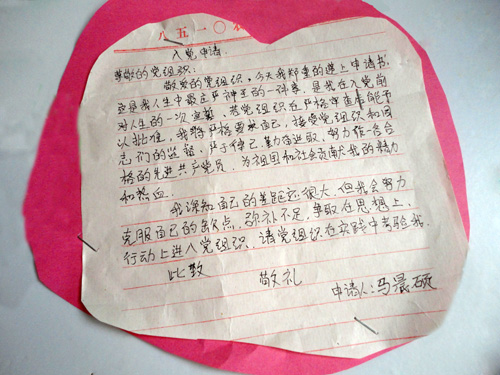 八五一〇农
入党申请
尊敬的党组织:
敬爱的党组织,今天我郑重的递上申请书,
这是我人生中最庄严神圣的一件事,是我在入党前
对人生的一次宣誓,若党组织在严格审查后能予
以批准,我将严格要求自己,接受党组织和同
志们的监督,严于律己,勤奋进取,努力作一名合
格的先进共产党员,为祖国和社会贡献我的精力
和热血。
我深知自己的差距还很大,但我会努力
克服自己的缺点,弥补不足,争取在思想上,
行动上进入党组织,请党组织在实践中考验我。
此致 敬礼
申请人:马晨硕